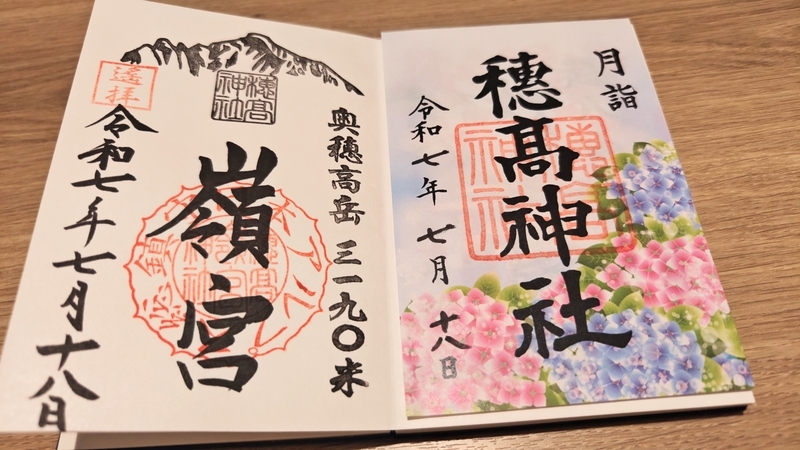 月詣
穂髙神社
令和七年 七月 十八日
穂髙神社
奥穂高岳 三一九〇米
穂髙神社
嶺宮
遙拝
令和七年七月十八日